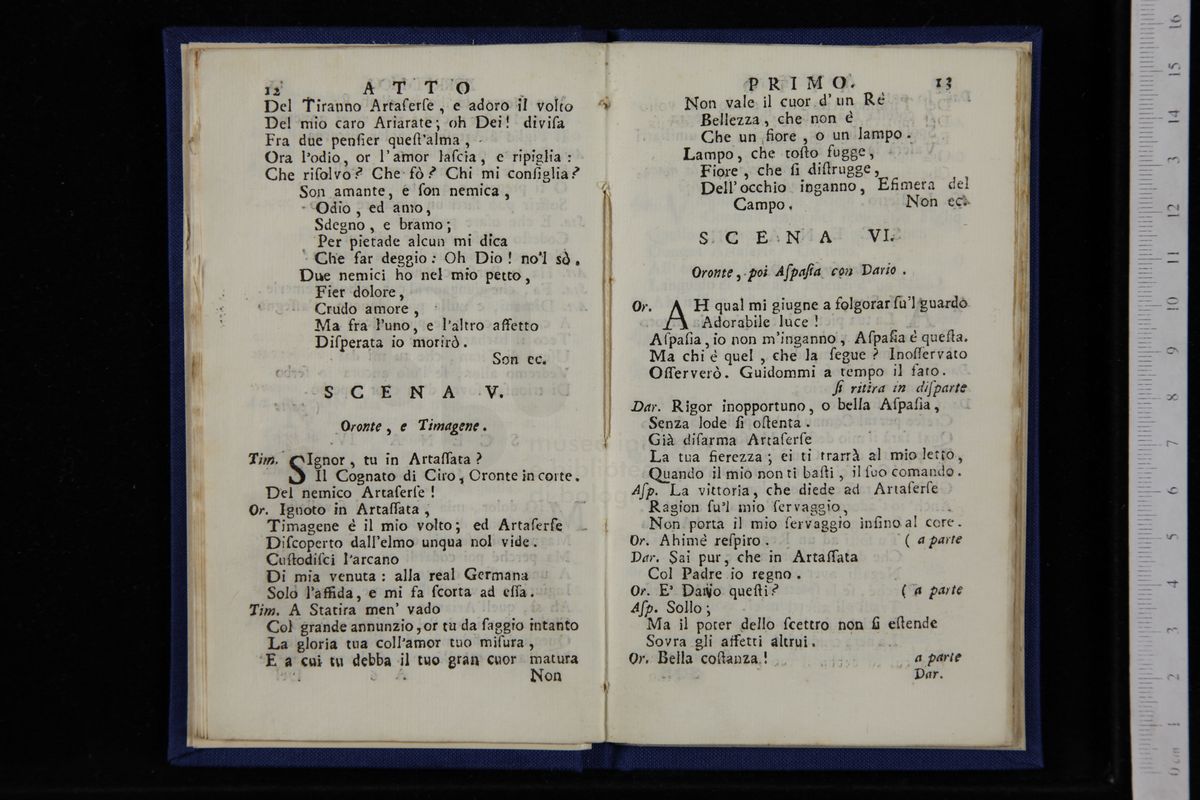 12 A T T O
Del Tiranno Artaſerſe, e adoro il volto
Del mio caro Ariarate; oh Dei! diviſa
Fra due penſier queſt'alma,
Ora l'odio, or l'amor laſcia, e ripiglia:
Che riſolvo? Che fò? Chi mi conſiglia?
Son amante, e ſon nemica,
Odio, ed amo,
Sdegno, e bramo;
Per pietade alcun mi dica
Che far deggio: Oh Dio! no'l sò.
Due nemici ho nel mio petto,
Fier dolore,
Crudo amore,
Ma fra l'uno, e l'altro affetto
Diſperata io morirò.
Son ec.
S C E N A V.
Oronte, e Timagene.
Tim. SIgnor, tu in Artaſſata?
Il Cognato di Ciro, Oronte in corte.
Del nemico Artaſerſe!
Or. Ignoto in Artaſſata,
Timagene è il mio volto; ed Artaſerſe
Diſcoperto dall'elmo unqua nol vide.
Cuſtodiſci l'arcano
Di mia venuta: alla real Germana
Solo l'affida, e mi fa ſcorta ad eſſa.
Tim. A Statira men' vado
Col grande annunzio, or tu da ſaggio intanto
La gloria tua coll'amor tuo miſura,
E a cui tu debba il tuo gran cuor matura
Non
P R I M O. 13
Non vale il cuor d'un Rè
Bellezza, che non è
Che un fiore, o un lampo.
Lampo, che toſto fugge,
Fiore, che ſi diſtrugge,
Dell'occhio inganno, Efimera del
Campo. Non ec.
S C E N A VI.
Oronte, poi Aſpaſia con Dario.
Or. AH qual mi giugne a folgorar ſu'l guardo
Adorabile luce!
Aſpaſia, io non m'inganno, Aſpaſia è queſta.
Ma chi è quel, che la ſegue? Inoſſervato
Oſſerverò. Guidommi a tempo il fato.
ſi ritira in diſparte
Dar. Rigor inopportuno, o bella Aſpaſia,
Senza lode ſi oſtenta.
Già diſarma Artaſerſe
La tua fierezza; ei ti trarrà al mio letto,
Quando il mio non ti baſti, il ſuo comando.
Aſp. La vittoria, che diede ad Artaſerſe
Ragion ſu'l mio ſervaggio,
Non porta il mio ſervaggio inſino al core.
Or. Ahimè reſpiro. ( a parte
Dar. Sai pur, che in Artaſſata
Col Padre io regno.
Or. E' Dario queſti? ( a parte
Aſp. Sollo;
Ma il poter dello ſcettro non ſi eſtende
Sovra gli affetti altrui.
Or. Bella coſtanza! a parte
Dar.